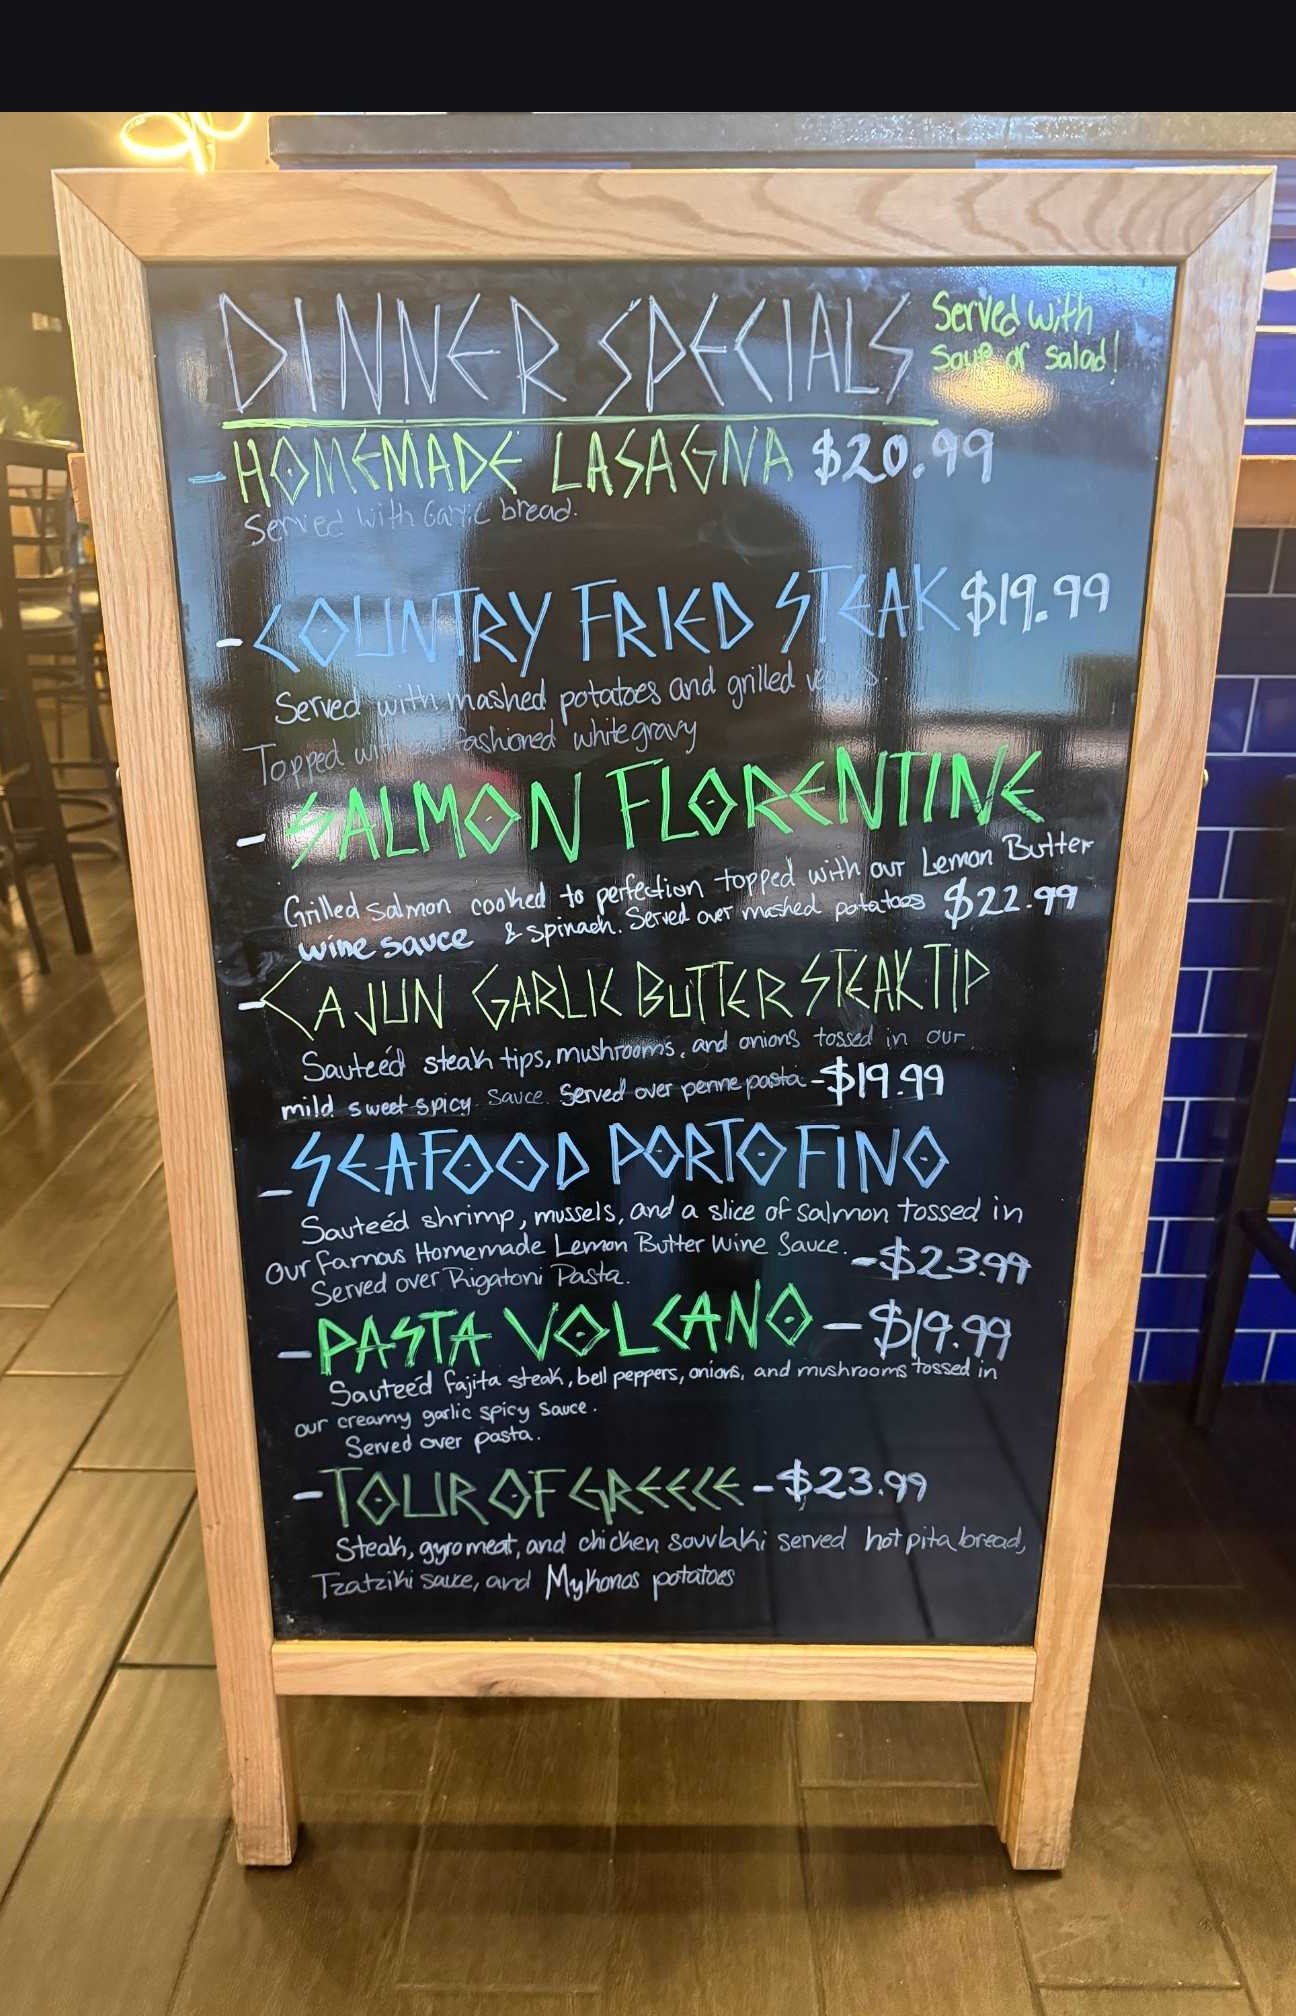 DINNER SPECIALS
Served with
Soup or salad!
- HOMEMADE LASAGNA $20.99
Served with Garlic bread.
- COUNTRY FRIED STEAK $19.99
Served with mashed potatoes and grilled
Topped with fashioned white gravy
- SALMON FLORENTINE
Grilled salmon cooked to perfection topped with our Lemon Butter
wine sauce & spinach. Served over mashed potatoes $22.99
- CAJUN GARLIC BUTTER STEAK TIP
Sauteéd steak tips, mushrooms, and onions tossed in our
mild sweet spicy sauce. Served over penne pasta - $19.99
- SEAFOOD PORTOFINO
Sauteéd shrimp, mussels, and a slice of salmon tossed in
our famous Homemade Lemon Butter Wine Sauce. - $23.99
Served over Rigatoni Pasta.
- PASTA VOLCANO - $19.99
Sauteéd fajita steak, bell peppers, onions, and mushrooms tossed in
our creamy garlic spicy sauce.
Served over pasta.
- TOUR OF GREECE - $23.99
Steak, gyro meat, and chicken souvlaki served hot pita bread,
Tzatziki sauce, and Mykonos potatoes